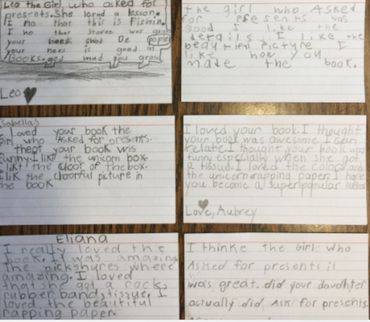 Leo the Girl. who asked for
presnets. She lornd a lesson.
your
books. and
Leo
the girl who Asked
for presents was
good I like the
details I like the
beautiful picture I
like how you
made the book.
Isabella
I loved your book the
Girl who Asked for presents.
I theot your book wis
funny I likt the unicorn box.
I likt the door of the box.
I lik the cloorful picture in
the book
I loved your book. I thought
your book was awesome I can
relate. I thought your book was
funny especially when she got
a tissue. I loved the colors and
the unicorn wrapping paper. I hope
you become a superpopular
Love, Aubrey
Eliana
I really loved the
book. It was amazing
the pickshures where
amazing. I loved
that she got a rock,
rubber band, tissue. I
loved the beautiful
rapping paper.
I thinke the Girl who
Asked for presents it
was great. did your davdhter
actually did ASK for presents.